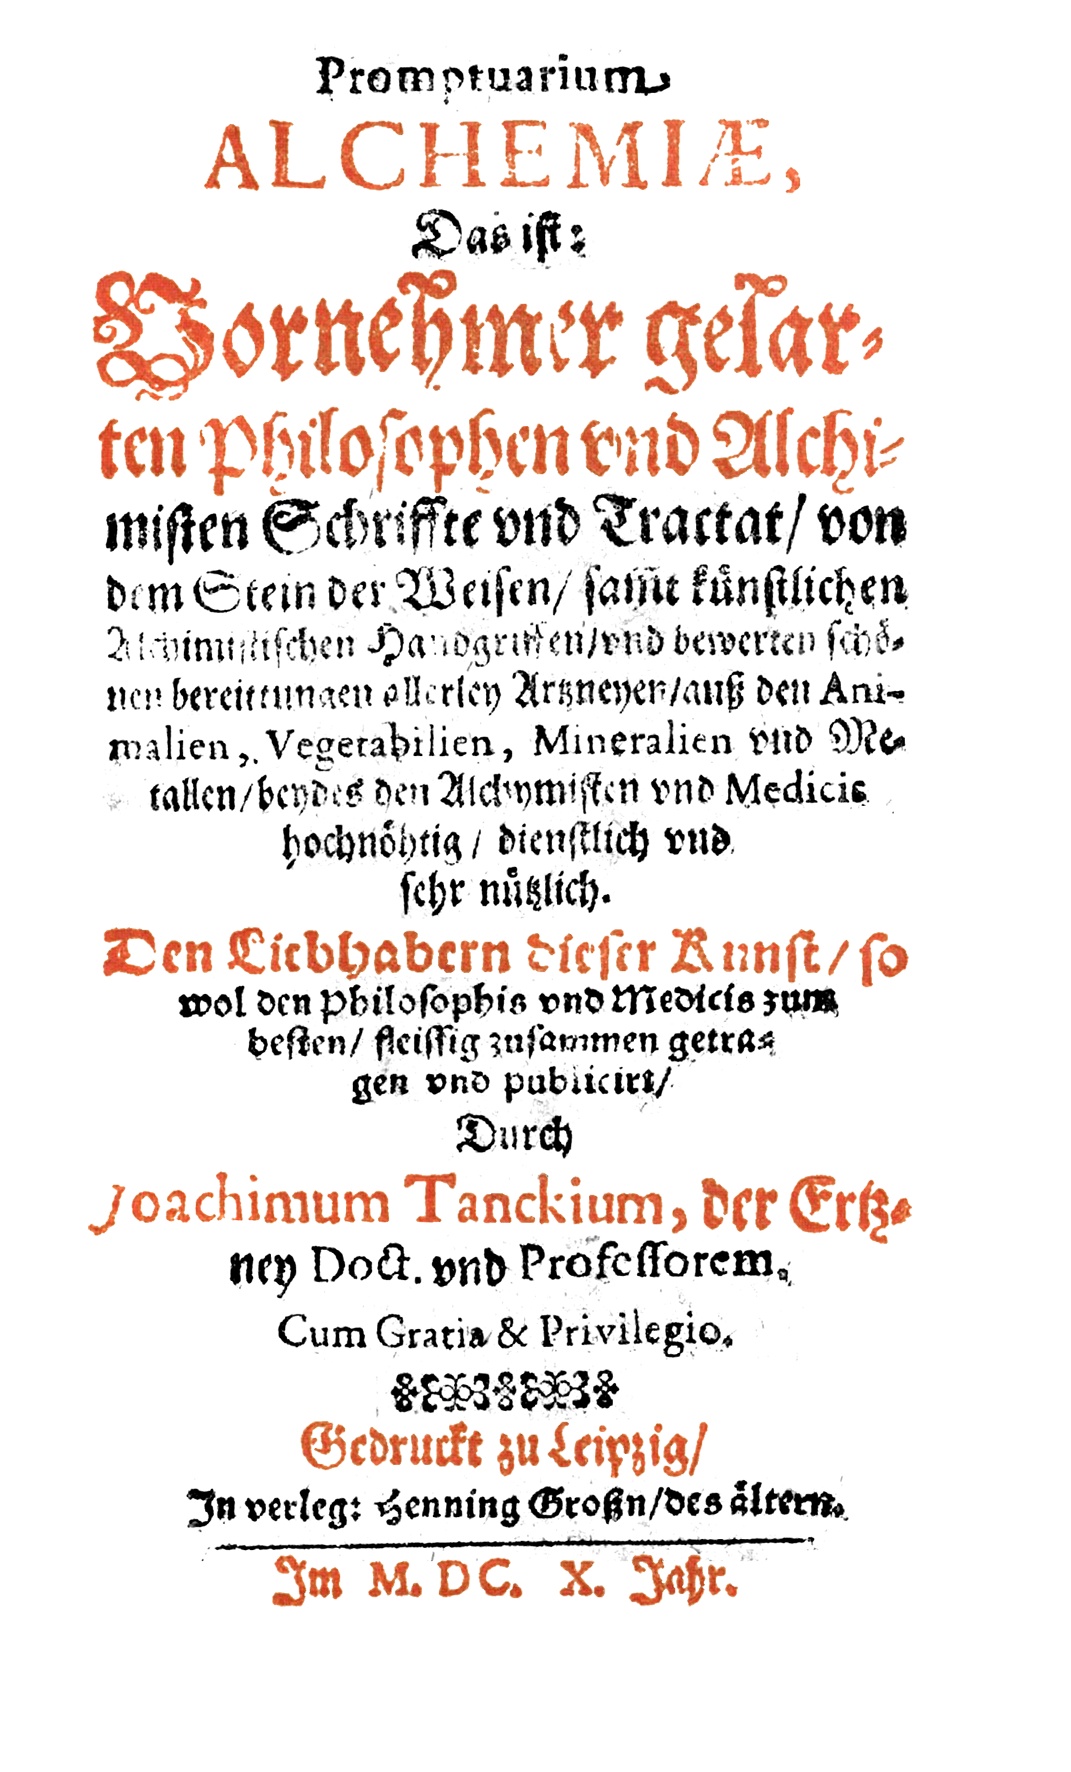 Promptuarium
ALCHEMIÆ,
Das ist:
Vornehmer gelar-
ten Philosophen vnd Alchi-
misten Schriffte vnd Tractat/ von
dem Stein der Weisen/ sam̃t kuͤnstlichen
Alchimistischen Handgriffen/vnd bewerten schoͤ-
nen bereittungen allerley Artzneyen/auß den Ani-
malien, Vegetabilien, Mineralien vnd Me-
tallen/beydes den Alchymisten vnd Medicis
hochnoͤhtig / dienstlich vnd
sehr nuͤtzlich.
Den Liebhabern dieser Kunst/ so
wol den Philosophis vnd Medicis zum
besten/ fleissig zusammen getra-
gen vnd publicirt/
Durch
Joachimum Tanckium, der Ertz-
ney Doct. vnd Professorem.
Cum Gratia & Privilegio.
Gedruckt zu Leipzig/
In verleg: Henning Großn/des aͤltern.
Im M. DC. X. Jahr.